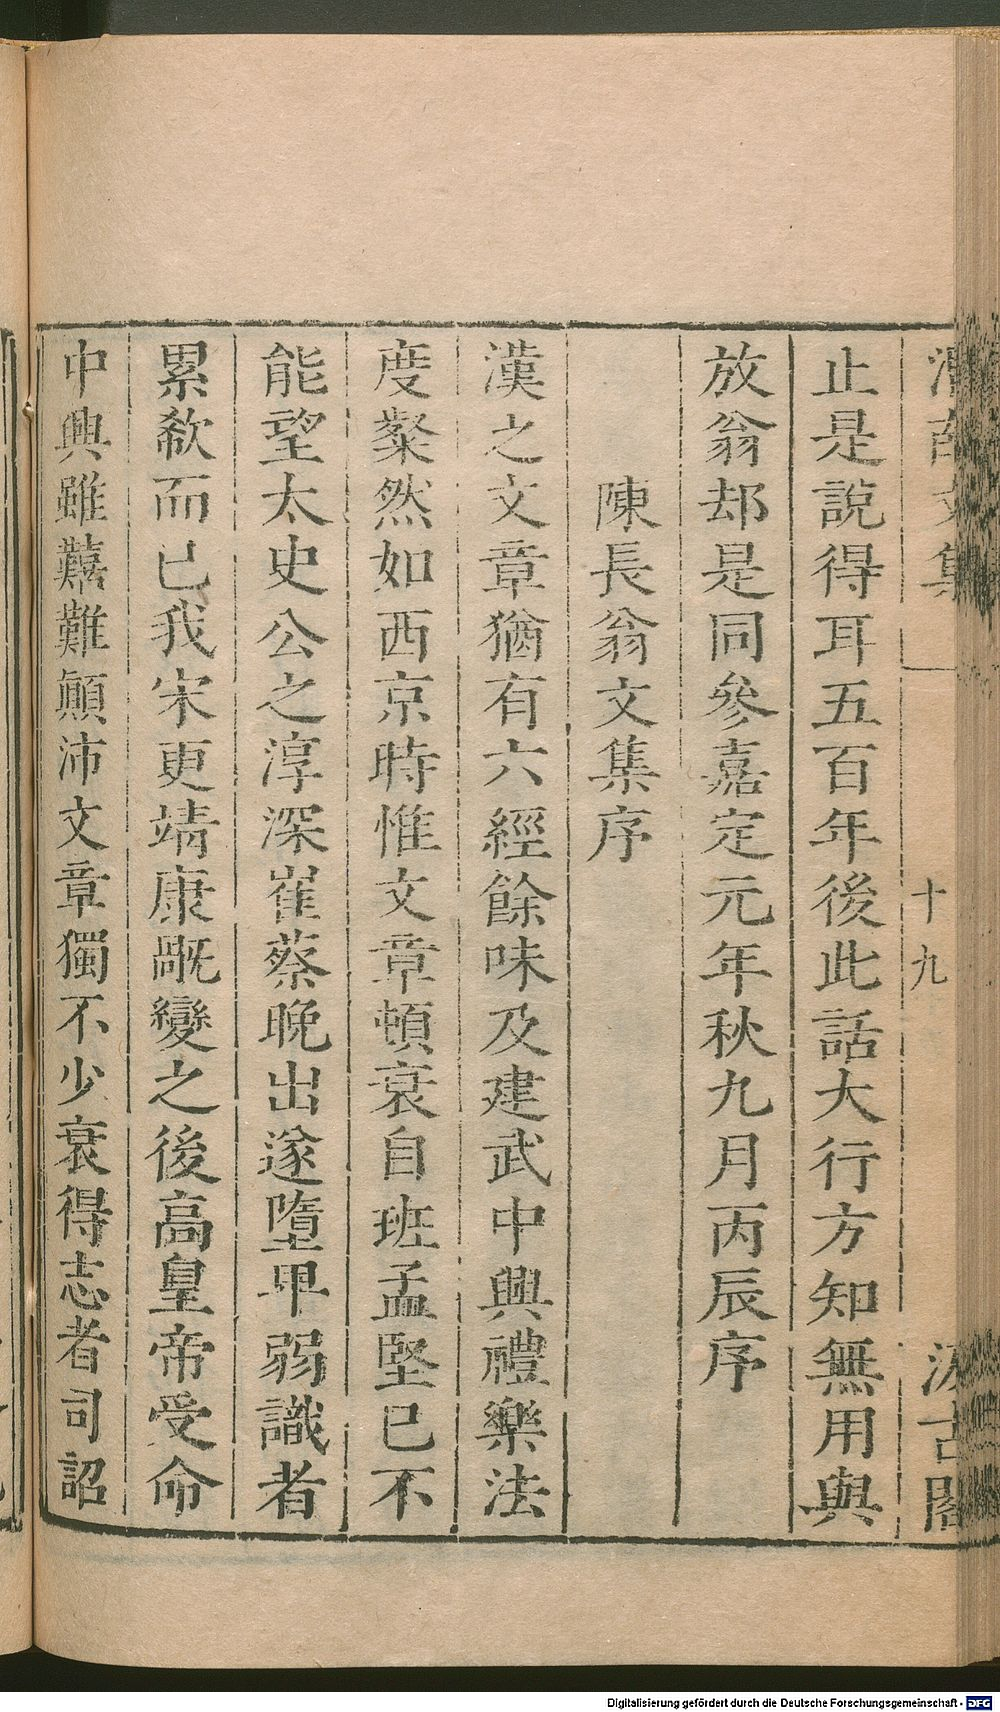 文集
一
十九
汲古閣
止是說得耳五百年後此話大行方知無用與
放翁却是同參嘉定元年秋九月丙辰序
陳長翁文集序
漢之文章猶有六經餘味及建武中興禮樂法
度粲然如西京時惟文章頓衰自班孟堅已不
能望太史公之淳深崔蔡晚出遂墮卑弱識者
累欷而已我宋更靖康𥚽變之後高皇帝受命
中興雖艱難顛沛文章獨不少衰得志者司詔
Digitalisierung gefördert durch die Deutsche Forschungsgemeinschaft - DFG